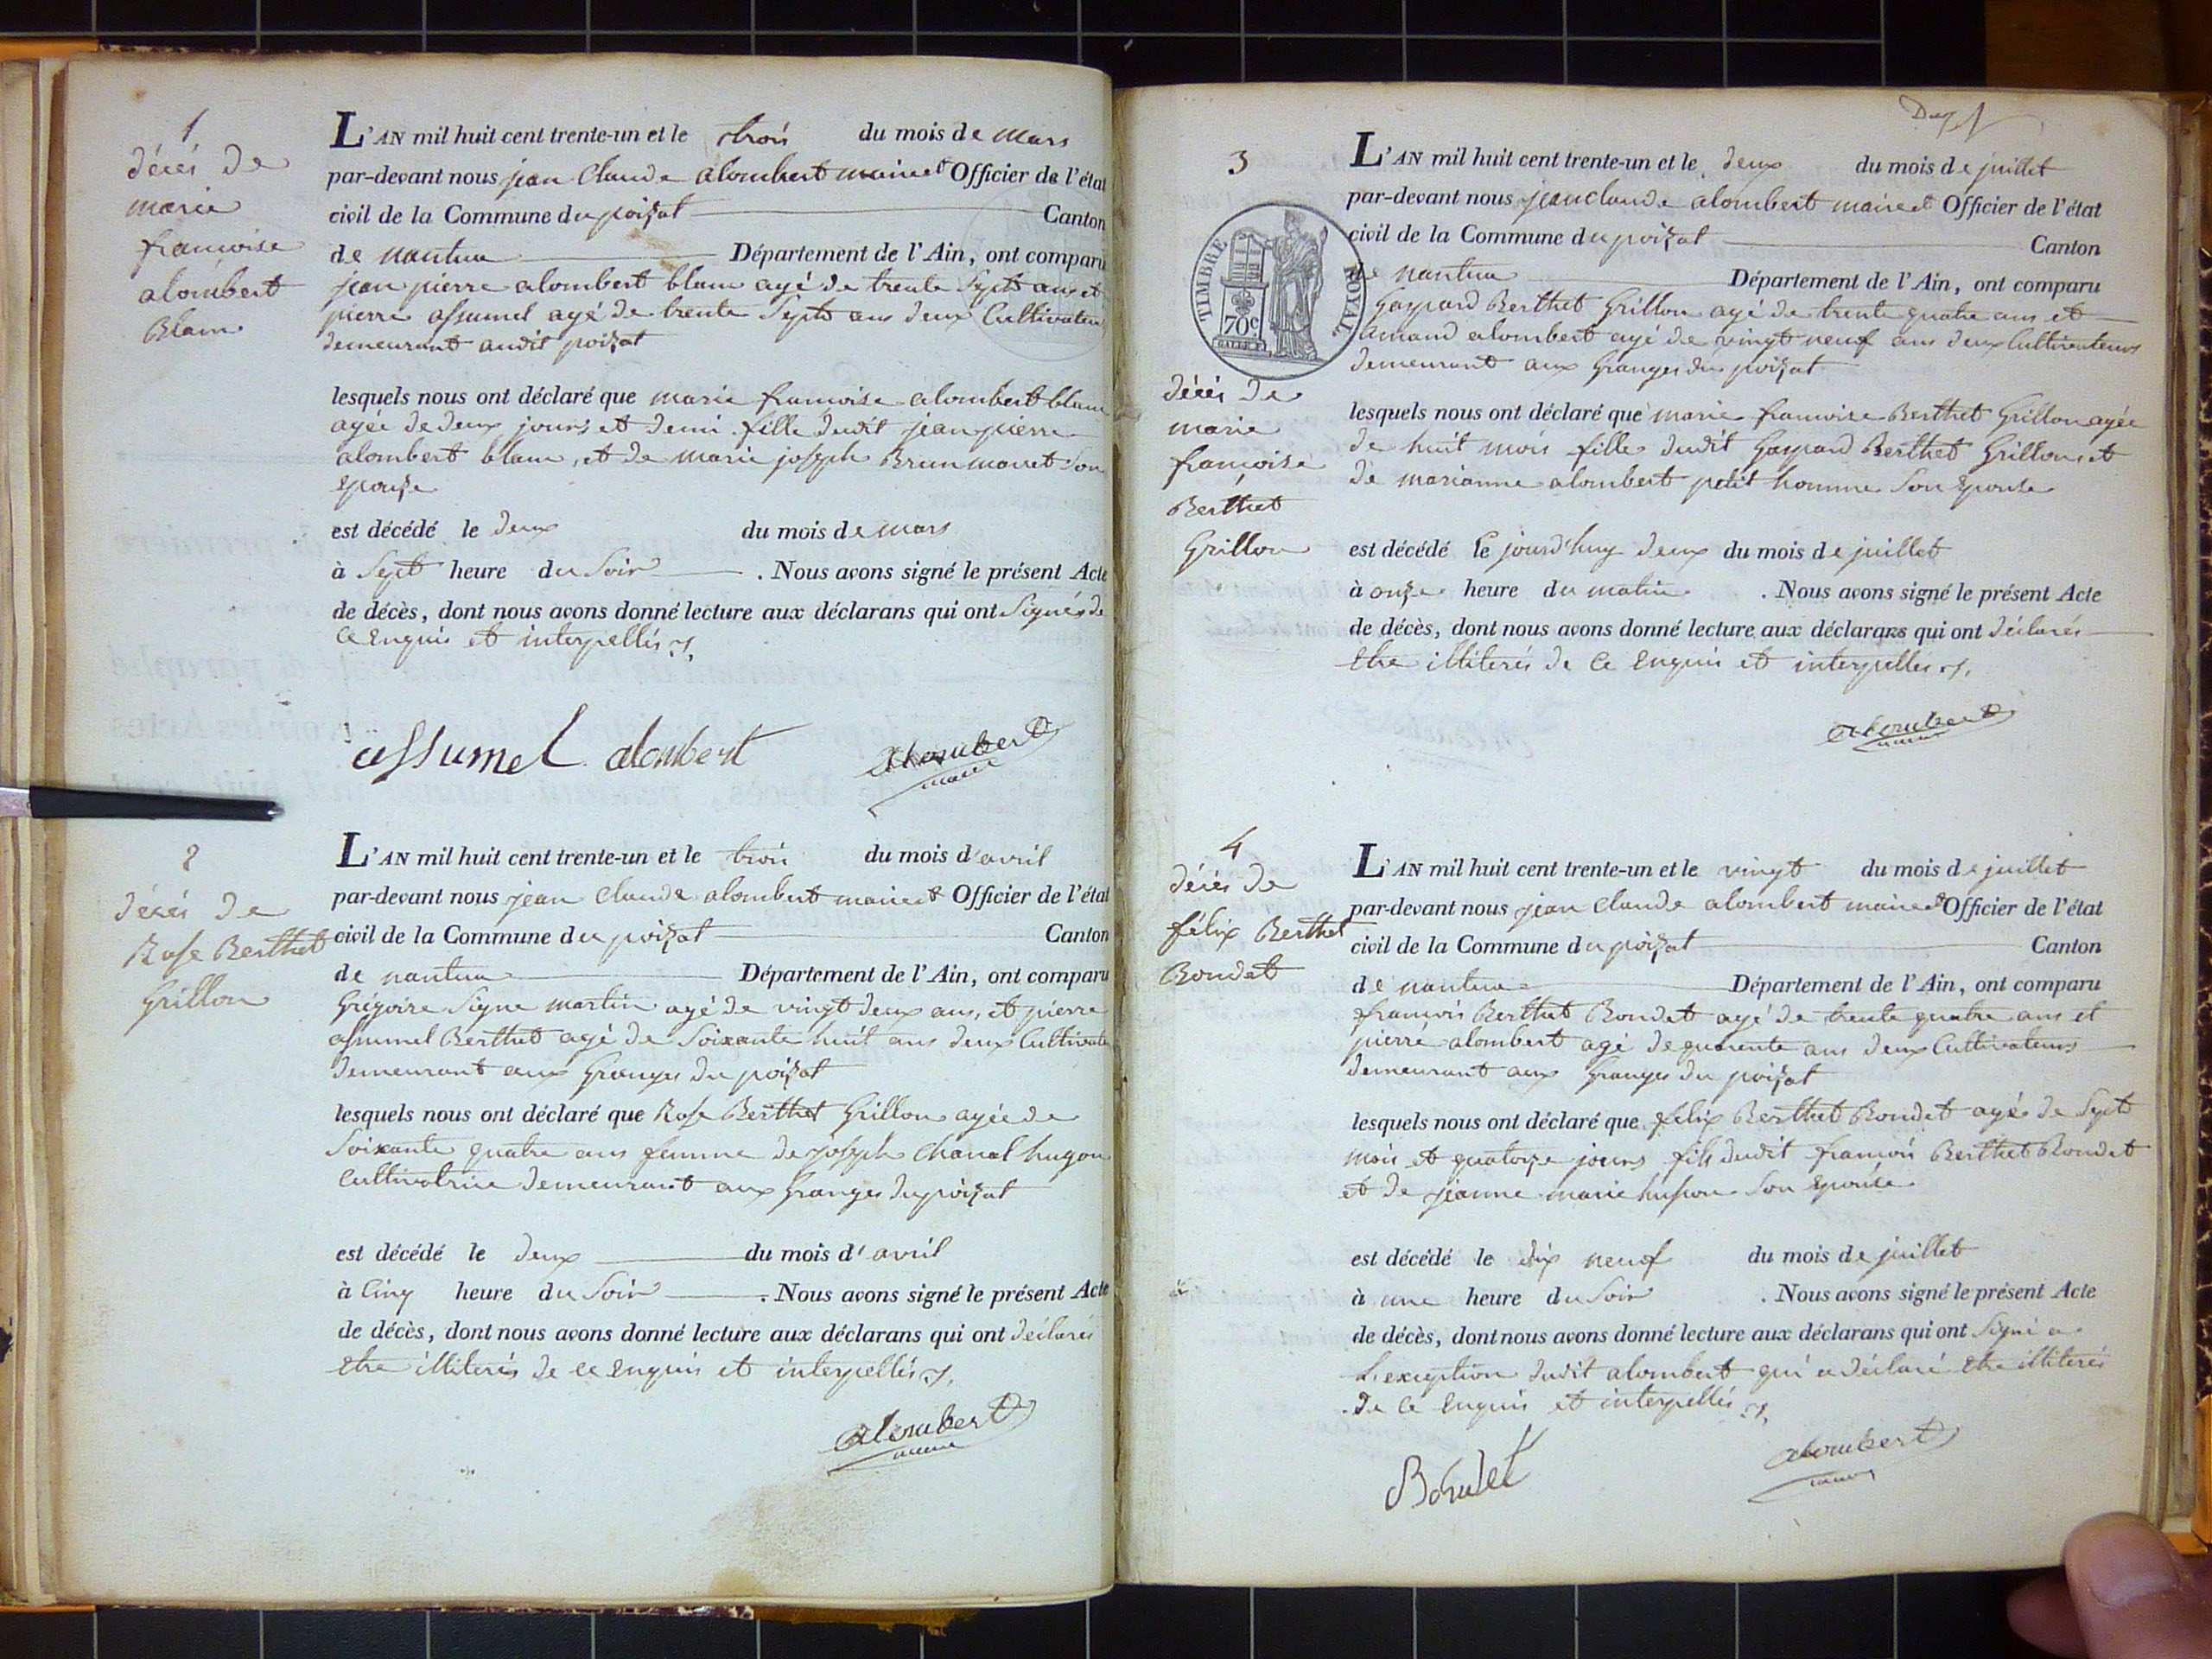 1
décés de
marie
francoise
alombert
Blanc
L'AN mil huit cent trente-un et le trois du mois de mars
par-devant nous jean Claude alombert maire et Officier de l'état
civil de la Commune du poizat Canton
de nantua Département de l'Ain, ont comparu
jean pierre alombert blanc agé de trente Sept ans et
pierre assumel agé de trente Sept ans deux Cultivateurs
demeurant audit poizat
lesquels nous ont déclaré que marie francoise alombert blanc
agée de deux jours et demi fille dudit jean pierre
alombert blanc, et de marie joseph Brun mouret Son
Epouze
est décédé le deux du mois de mars
à Sept heure du Soir . Nous avons signé le présent Acte
de décès, dont nous avons donné lecture aux déclarans qui ont Signés de
Ce Enquis et interpellés
assumel alombert alombert
maire
2
décés de
Rose Berthet
Grillon
L'AN mil huit cent trente-un et le trois du mois d'avril
par-devant nous jean Claude alombert maire et Officier de l'état
civil de la Commune du poizat Canton
de nantua Département de l'Ain, ont comparu
Grégoire Signe martin agé de vingt deux ans, et pierre
assumel Berthet agé de Soixante huit ans deux Cultivate
demeurant aux Granges du poizat
lesquels nous ont déclaré que Rose Berthet Grillon agée de
Soixante quatre ans femme de joseph Chanal hugon
Cultivatrice demeurant aux Granges du poizat
est décédé le deux du mois d'avril
à Cinq heure du Soir . Nous avons signé le présent Acte
de décès, dont nous avons donné lecture aux déclarans qui ont déclarés
Etre illiterés de ce Enquis et interpellés
alombert
maire
3
TIMBRE ROYAL
70c
décés de
marie
francoise
Berthet
Grillon
L'AN mil huit cent trente-un et le deux du mois de juillet
par-devant nous jean claude alombert maire et Officier de l'état
civil de la Commune du poizat Canton
de nantua Département de l'Ain, ont comparu
Gaspard Berthet Grillon agé de trente quatre ans et
amand alombert agé de vingt neuf ans deux Cultivateurs
demeurant aux Granges du poizat
lesquels nous ont déclaré que marie francoise Berthet Grillon agée
de huit mois fille dudit Gaspard Berthet Grillon et
de marianne alombert petit homme Son Epouse
est décédé le jourd'huy deux du mois de juillet
à onze heure du matin . Nous avons signé le présent Acte
de décès, dont nous avons donné lecture aux déclarans qui ont déclarés
Etre illiterés de Ce Enquis et interpellés
alombert
maire
4
décés de
félix Berthet
Bondet
L'AN mil huit cent trente-un et le vingt du mois de juillet
par-devant nous jean Claude alombert maire et Officier de l'état
civil de la Commune du poizat Canton
de nantua Département de l'Ain, ont comparu
francois Berthet Bondet agé de trente quatre ans et
pierre alombert agé de quarente ans deux Cultivateurs
demeurant aux Granges du poizat
lesquels nous ont déclaré que felix Berthet Bondet agé de Sept
mois et quatorze jours fils dudit francois Berthet Bondet
et de jeanne marie husson Son Epouse
est décédé le dix neuf du mois de juillet
à une heure du Soir . Nous avons signé le présent Acte
de décès, dont nous avons donné lecture aux déclarans qui ont Signé a
L'exception dudit alombert qui a déclaré Etre illiterés
de Ce Enquis et interpellés
Bondet alombert
maire